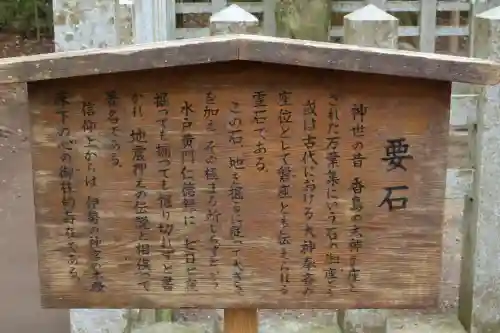 要石
神世の昔 香島の大神が座と
された万葉集にいう石の御座とも
或は古代における大神奉斎の
座位として磐座とも伝えられる
霊石である。
この石、地を掘るに従って大きさ
を加え その極まる所しらずという
水戸黄門仁徳録に 七日七夜
掘っても掘っても掘り切れずと書
かれ 地震押えの伝説と相俟って
著名である。
信仰上からは 伊勢の神宮の本殿
床下の心の御柱的存在である。